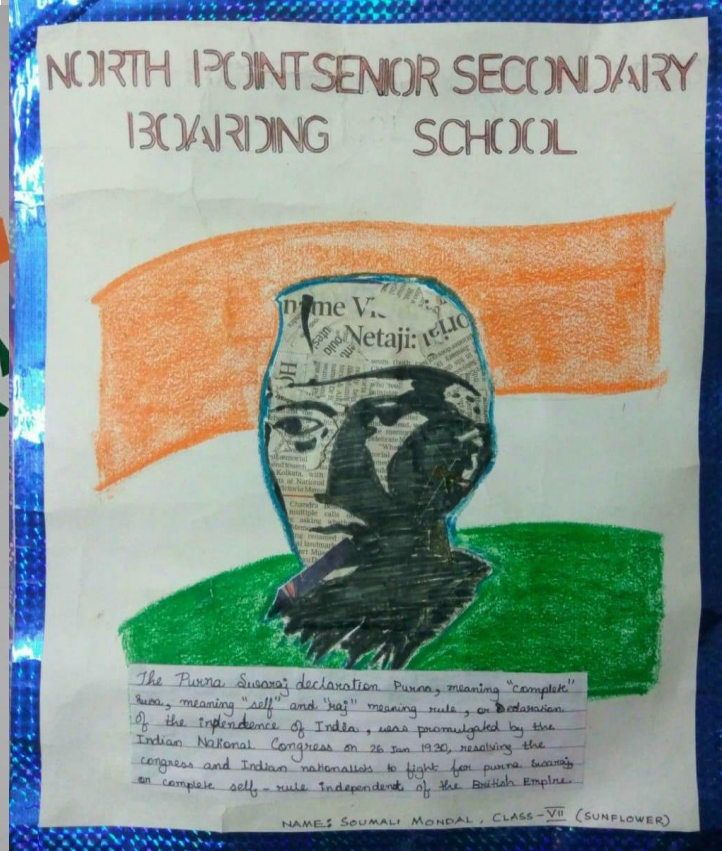 NORTH POINT SENIOR SECONDARY
BOARDING SCHOOL
Netaji:
Kolkata, with
at National
Victoria Mem
Chandra
multiple calls
asking
renamed
landmark
The Purna Swaraj declaration Purna, meaning "complete"
Swa, meaning "self" and "raj" meaning rule, or Declaration
of the indpendence of India, was promulgated by the
Indian National Congress on 26 Jan 1930, resolving the
congress and Indian nationalists to fight for purna swaraj,
or complete self-rule independent of the British Empire.
NAME: SOUMALI MONDAL, CLASS-VII (SUNFLOWER)